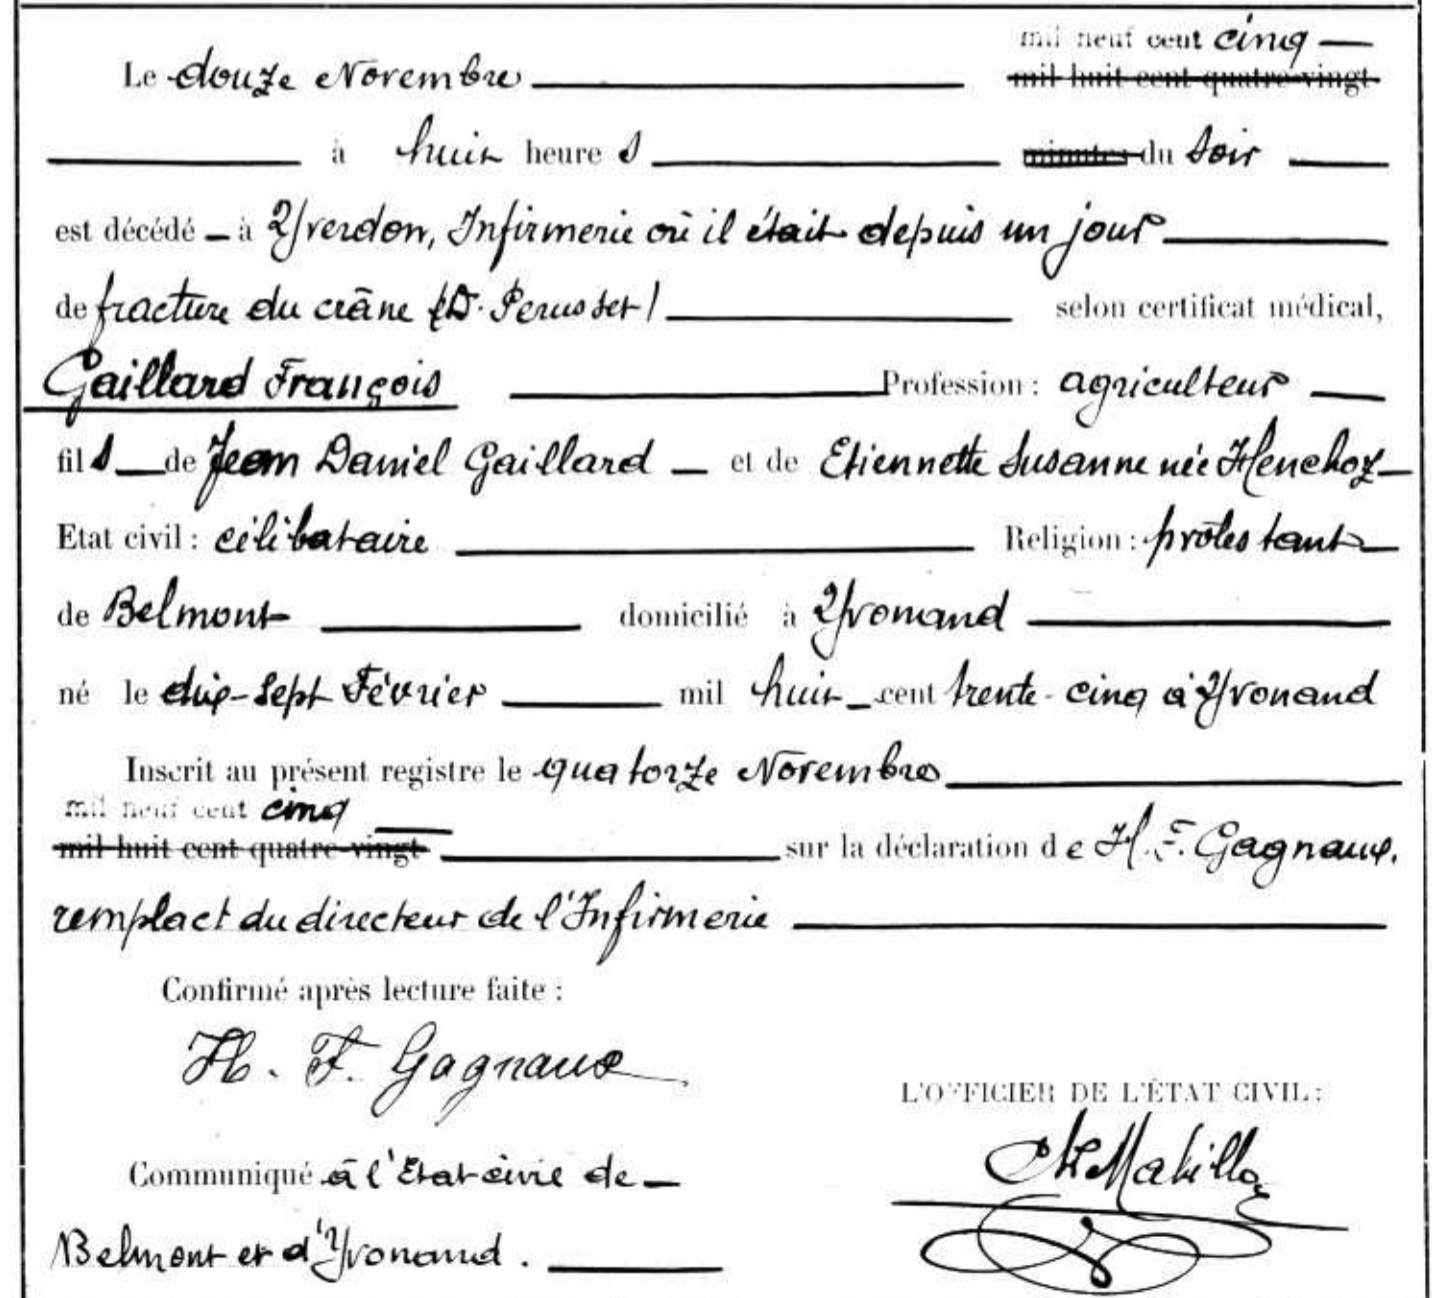 mil neuf cent cinq
Le douze Novembre mil huit cent quatre-vingt
à huit heures minutes du soir
est décédé à Yverdon, Infirmerie où il était depuis un jour
de fracture du crâne (Dr. Perusset) selon certificat médical,
Gaillard François Profession : agriculteur
fils de Jean Daniel Gaillard et de Etiennette Susanne née Henchoz
Etat civil : célibataire Religion : protestant
de Belmont domicilié à Yvonand
né le dix-sept Février mil huit cent trente-cinq à Yvonand
Inscrit au présent registre le quatorze Novembre
mil neuf cent cinq
mil huit cent quatre-vingt sur la déclaration de H. F. Gagnaux,
remplact du directeur de l'Infirmerie
Confirmé après lecture faite :
H. F. Gagnaux
L'OFFICIER DE L'ÉTAT CIVIL :
Communiqué à l'Etat-civil de
Belmont et d'Yvonand.